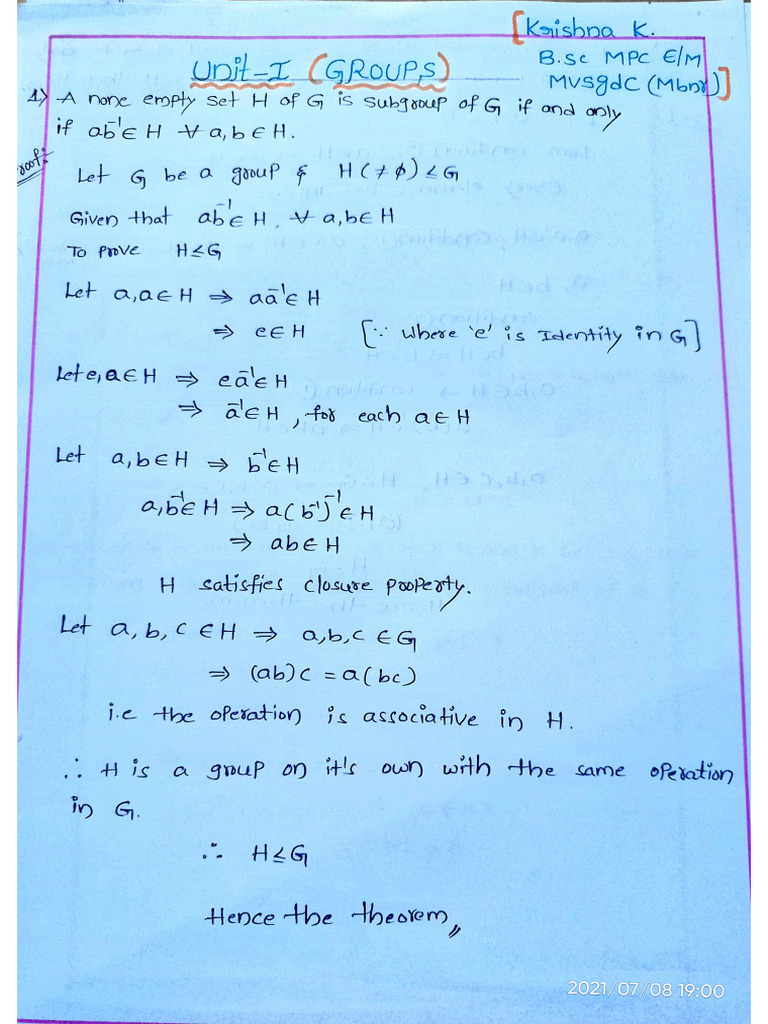 [Krishna K.
B.sc MPC E/M
MVSgdC (Mbnr)]
Unit-I (GROUPS)
1) A none empty set H of G is subgroup of G if and only
if ab⁻¹∈H ∀ a,b∈H.
roof:
Let G be a group & H(≠ϕ)≤G
Given that ab⁻¹∈H, ∀ a,b∈H
To prove H≤G
Let a,a∈H ⇒ aa⁻¹∈H
⇒ e∈H [∵ where 'e' is Identity in G]
Let e,a∈H ⇒ ea⁻¹∈H
⇒ a⁻¹∈H, for each a∈H
Let a,b∈H ⇒ b⁻¹∈H
a,b⁻¹∈H ⇒ a(b⁻¹)⁻¹∈H
⇒ ab∈H
H satisfies closure property.
Let a,b,c∈H ⇒ a,b,c∈G
⇒ (ab)c = a(bc)
i.e the operation is associative in H.
∴ H is a group on it's own with the same operation
in G.
∴ H≤G
Hence the theorem,,
2021/07/08 19:00